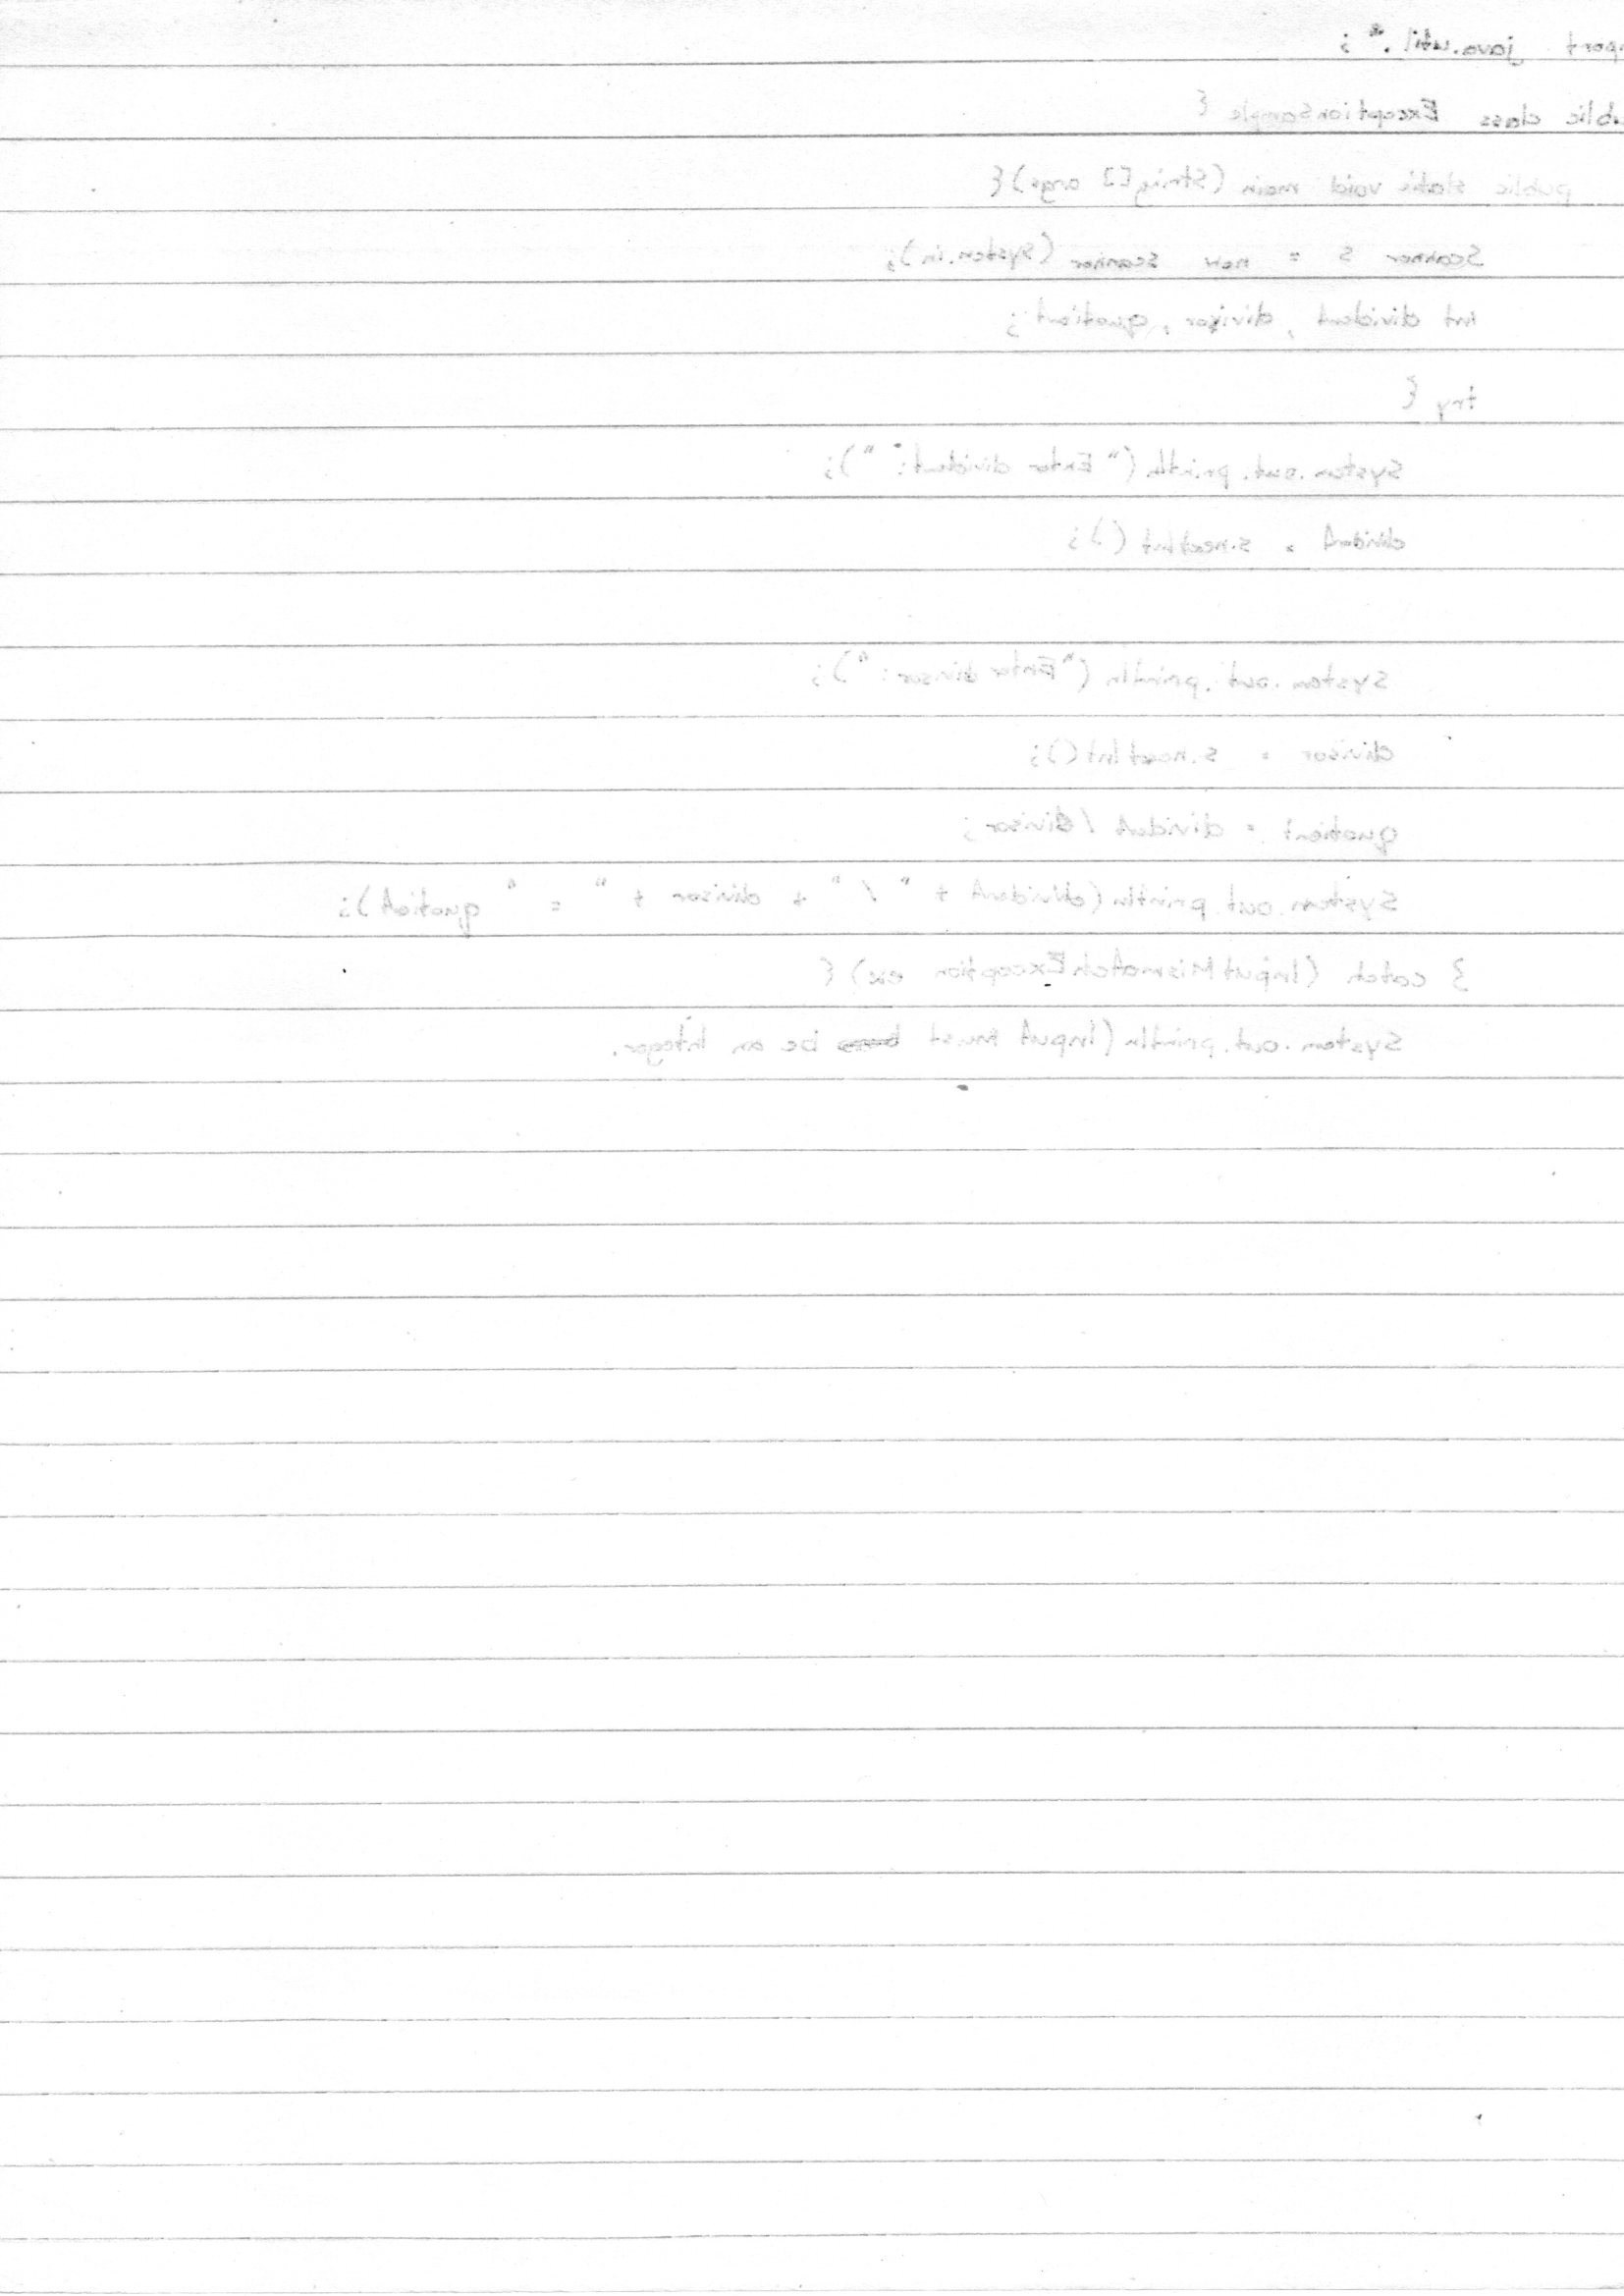 port java.util.*;
ublic class ExceptionSample {
public static void main (String [] args) {
Scanner s = new scanner (system.in);
int divident, divisor, quotient;
try {
system.out.println ("Enter divident: ");
divident = s.nextInt ();
system.out.println ("Enter divisor: ");
divisor = s.nextInt();
quotient = divident / divisor;
system.out.println (divident + " / " + divisor + " = " quotient);
} catch (InputMismatchException ex) {
system.out.println (Input must be an Integer.